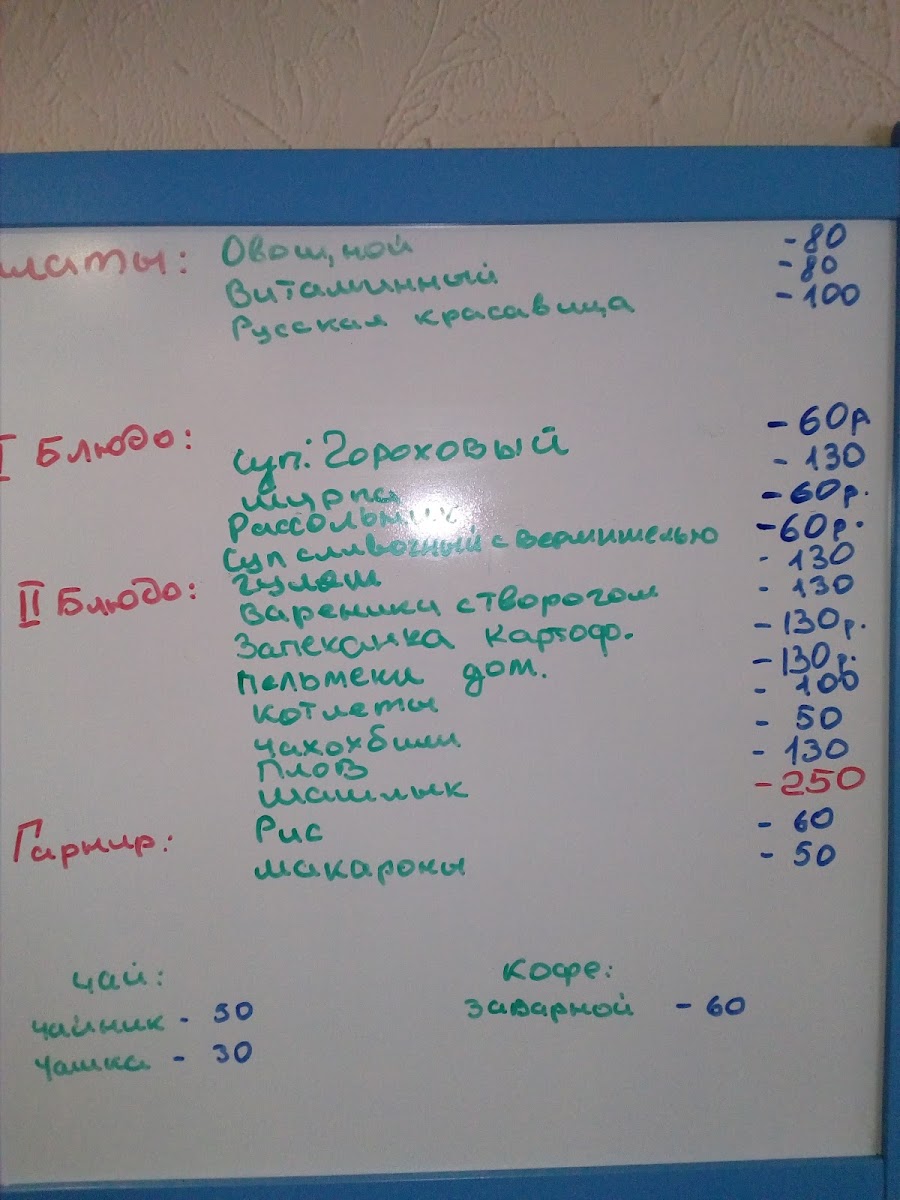 латы: Овощной - 80
Витаминный - 80
Русская красавица - 100
I Блюдо: Суп: Гороховый - 60р
Шурпа - 130
Рассольник - 60р.
Суп сливочный с вермишелью - 60р.
II Блюдо: Гуляш - 130
Вареники с творогом - 130
Запеканка картоф. - 130р.
Пельмени дом. - 130р.
Котлеты - 100
Чахохбили - 50
Плов - 130
Шашлык - 250
Гарнир: Рис - 60
Макароны - 50
Чай:
Чайник - 50
Чашка - 30
Кофе:
Заварной - 60